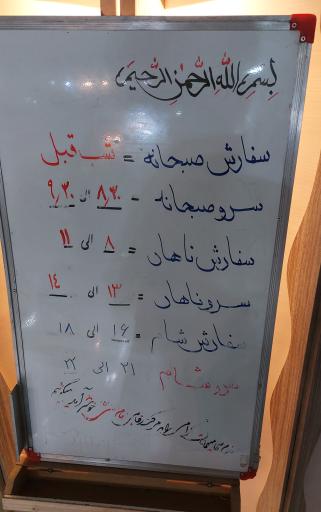 بسم الله الرحمن الرحیم
سفارش صبحانه = شب قبل
سرو صبحانه - ۸,۳۰ الی ۹,۳۰
سفارش ناهار = ۸ الی ۱۱
سرو ناهار = ۱۳ الی ۱۴
سفارش شام = ۱۶ الی ۱۸
سرو شام ۲۱ الی ۲۲
خوش آمد میگوئیم